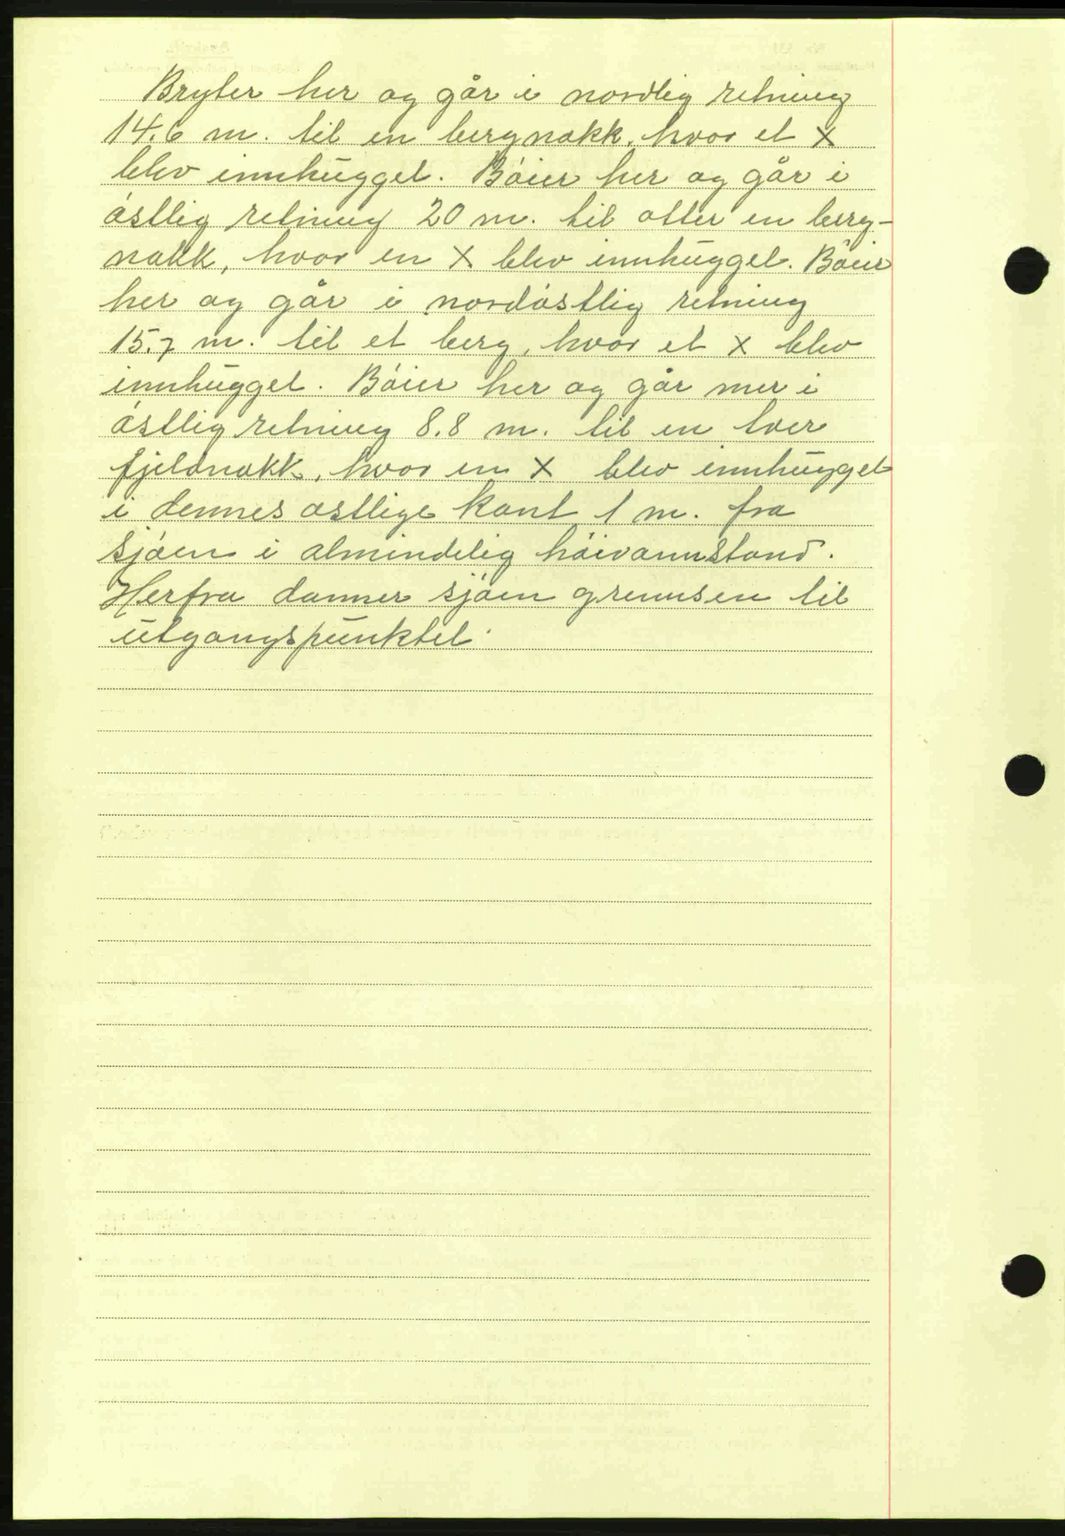 Bryter her og går i nordlig retning
14.6 m. til en bergnakk, hvor et X
blev innhugget. Bóier her og går i
óstlig retning 20 m. til atter en berg-
nakk, hvor en X blev innhugget. Bóier
her og går i nordóstlig retning
15.7 m. til et berg, hvor et X blev
innhugget. Bóier her og går mer i
óstlig retning 8.8 m. til en tver
fjeldnakk, hvor en X blev innhugget
i dennes ostlige kant 1 m. fra
sjóen i almindelig hóivannstand.
Herfra danner sjóen grensen til
utgangspunktet.